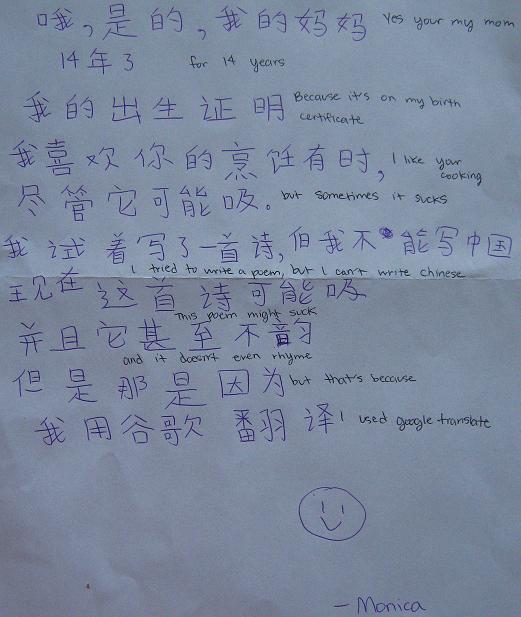 哦,是的,我的妈妈 Yes your my mom
14年了 for 14 years
我的出生证明 Because it's on my birth certificate
我喜欢你的烹饪有时, I like your cooking
尽管它可能吸。 but sometimes it sucks
我试着写了一首诗,但我不能写中国
I tried to write a poem, but I can't write chinese
现在这首诗可能吸
This poem might suck
并且它甚至不韵
and it doesn't even rhyme
但是那是因为 but that's because
我用谷歌 翻译 I used google translate
- Monica